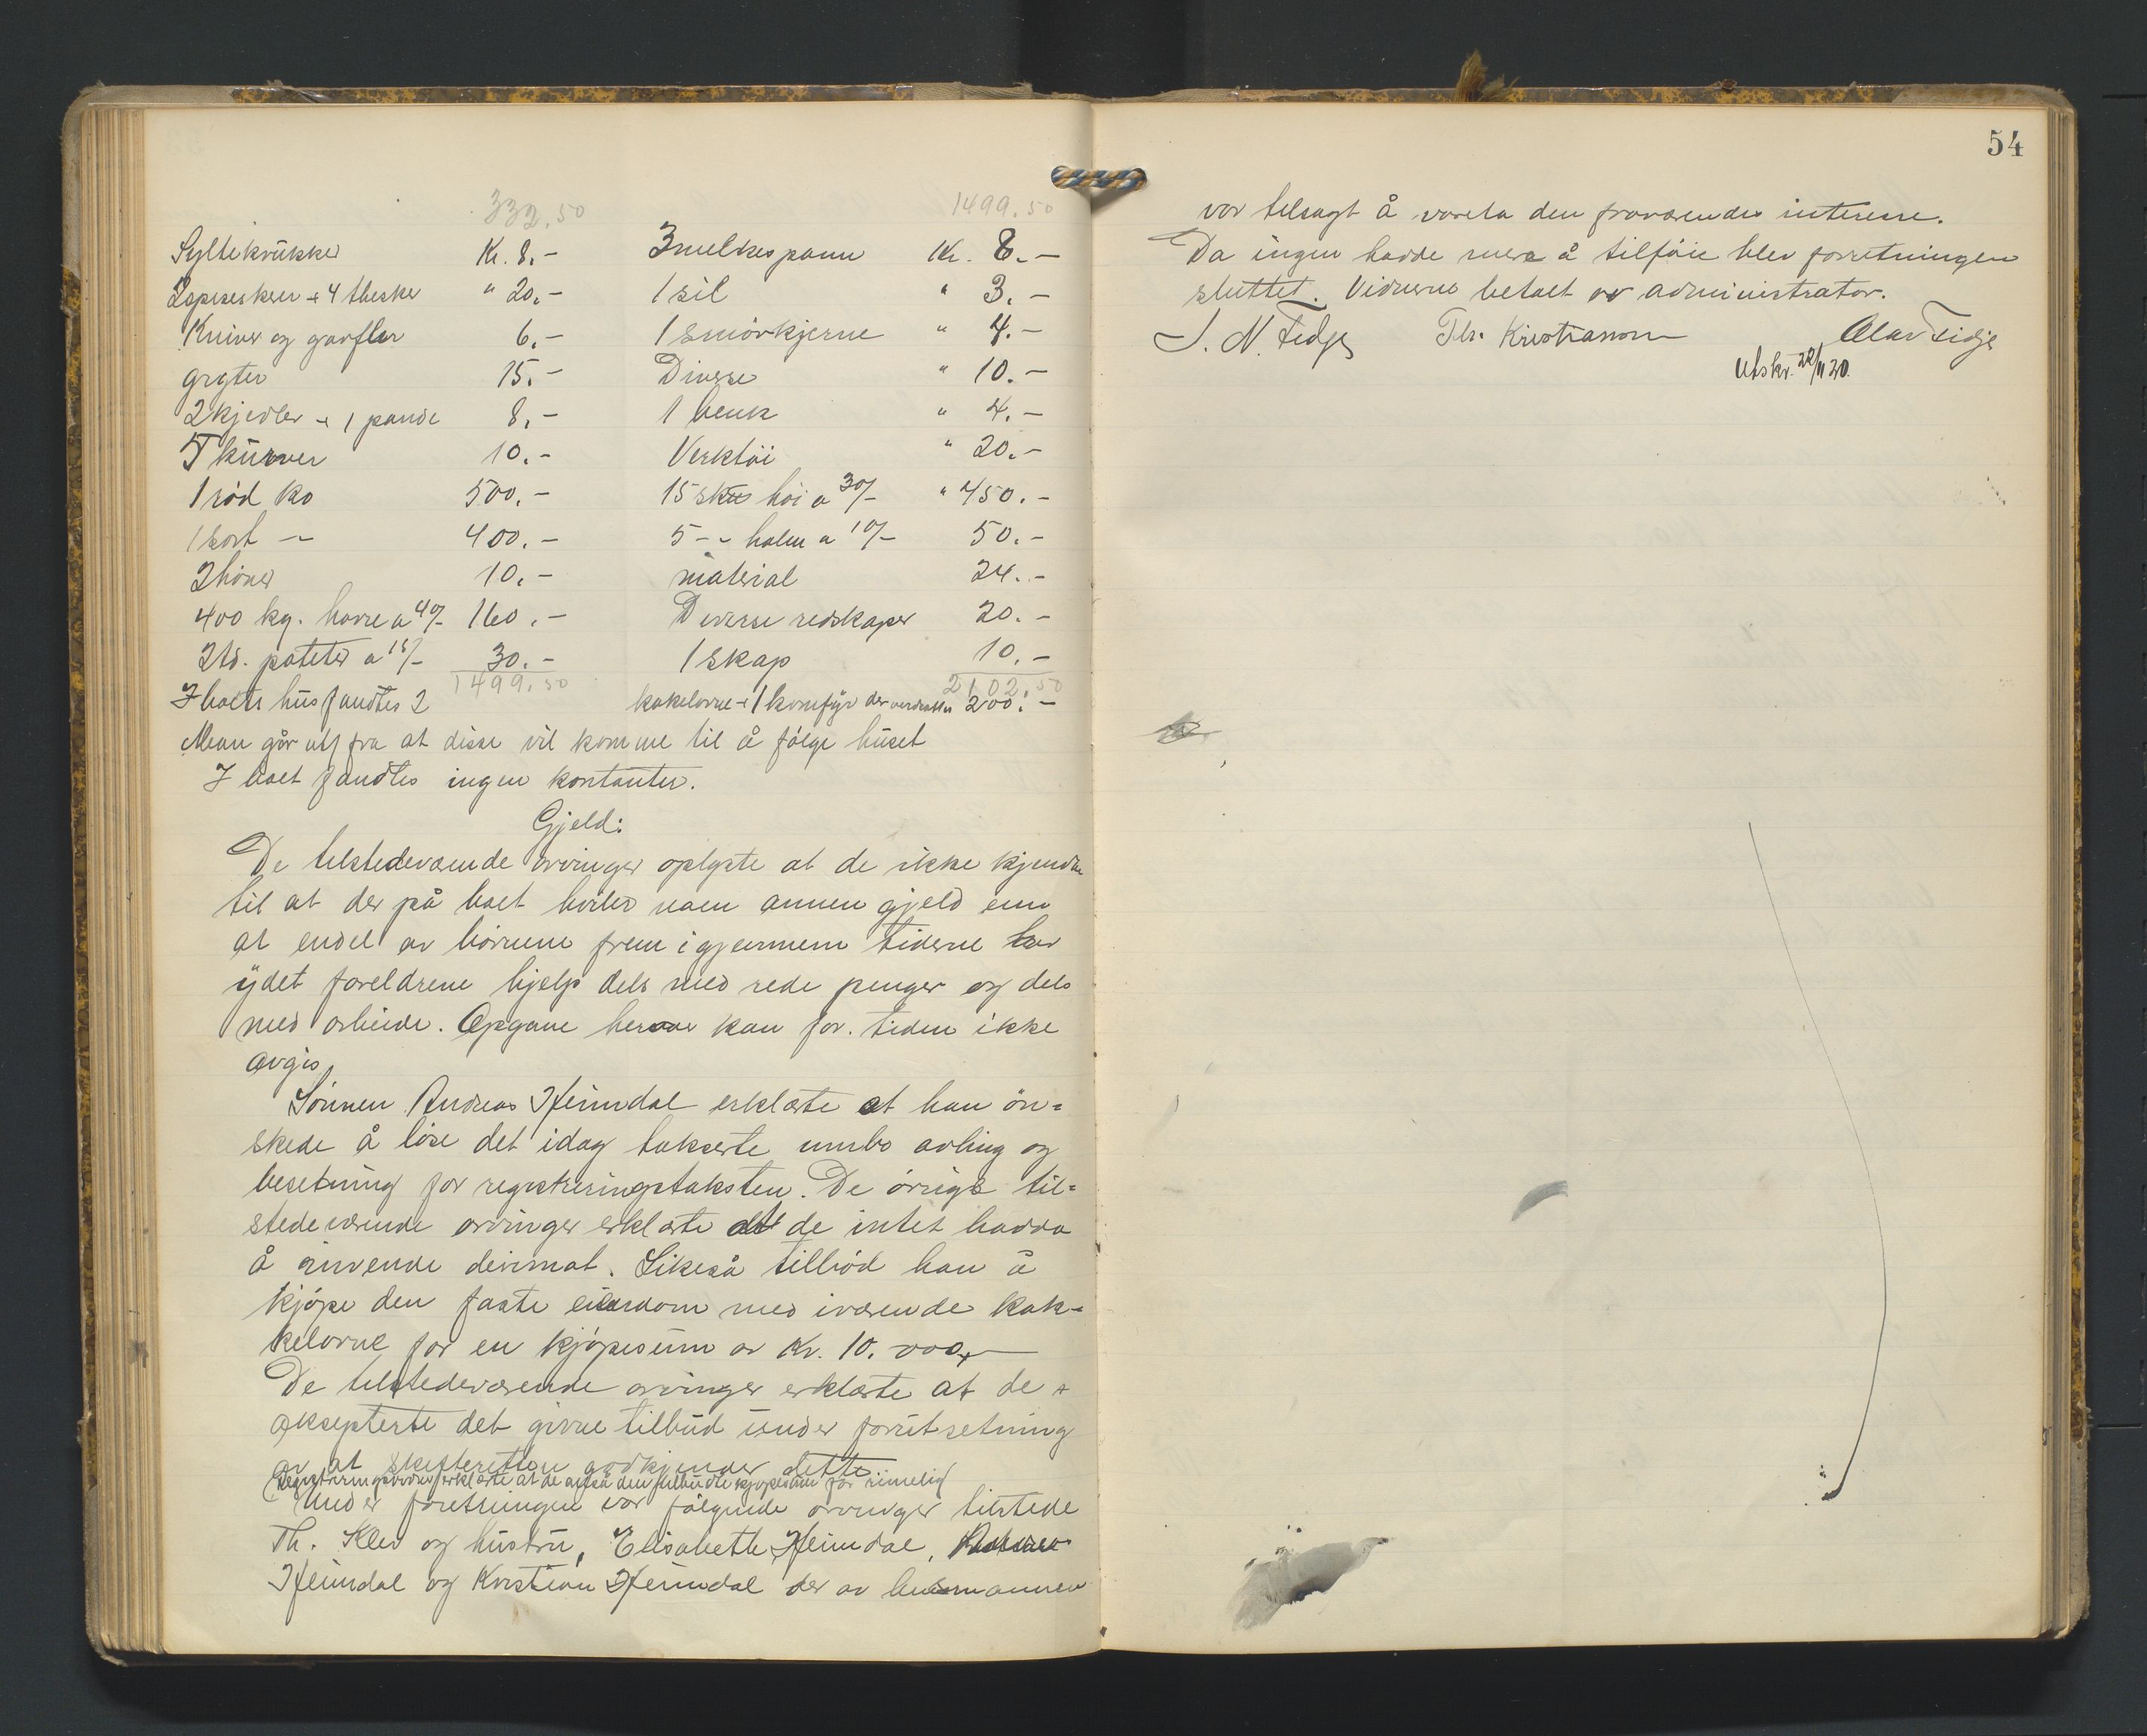 332.50
Syltekrukker Kr. 8.-
2 spiseskeer + 4 thesker " 20.-
Kniver og gavfler 6.-
gryter 15.-
2 kjedler + 1 pande 8.-
5 kurver 10.-
1 rød ko 500.-
1 sort - 400.-
2 høner 10.-
400 kg. havre a 40/- 160.-
2 td. poteter a 15/- 30.-
1499.50
1499.50
3 melkespann Kr. 8.-
1 sil " 3.-
1 smørkjerne " 4.-
Diverse " 10.-
1 benk " 4.-
Verktøi " 20.-
15 skt høi a 30/- " 450.-
5 - - halm a 10/- 50.-
material 24.-
Diverse redskaper 20.-
1 skap 10.-
2102.50
I boets hus fandtes 2 kakelovne + 1 komfyr der verdsattes 200.-
Man går ut fra at disse vil komme til å følge huset
I boet fandtes ingen kontanter.
Gjeld:
De tilstedeværende arvinger oplyste at de ikke kjendte
til at der på boet hviler noen annen gjeld enn
at endel av børnene frem igjennem tiderne har
ydet foreldrene hjelp dels med rede penger og dels
med arbeide. Opgave herover kan for. tiden ikke
avgis,
Sønnen Andreas Heimdal erklærte at han øn=
skede å løse det idag takserte innbo avling og
besetning for registreringstaksten. De øvrige til=
stedeværende arvinger erklærte at de intet hadde
å invende derimot. Likeså tilbød han å
kjøpe den faste eiendom med iværende kak=
kelovne for en kjøpesum av Kr. 10.000,-
De tilstedeværende arvinger erklærte at de
aksepterte det givne tilbud under forutsetning
av at skifteretten godkjender dette.
(Registreringsvidner erklærte at de anså den tilbudte kjøpesum for rimelig)
Under forretningen var følgende arvinger tilstede
Th. Klev og hustru, Elisabeth Heimdal,
Heimdal og Kristian Heimdal der av lensmannen
54
var tilsagt å vareta den fraværendes interesse.
Da ingen hadde mera å tilføie blev forretningen
sluttet. Vidnerne betalt av administrator.
J. N. Fidje Th. Kristiansson Olav Fidje
Utskr. 22/11 20.